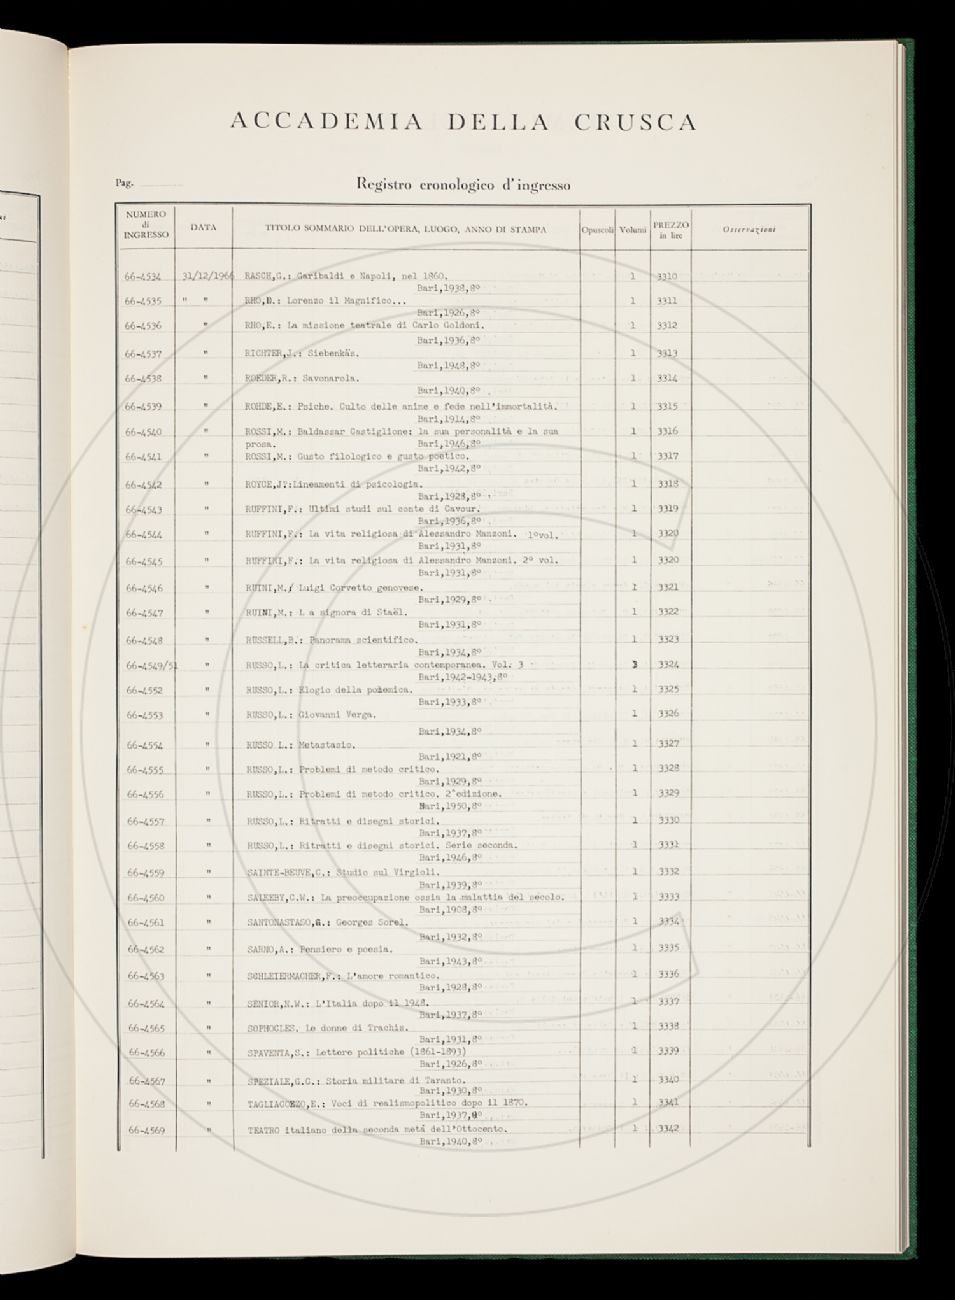 ACCADEMIA DELLA CRUSCA
Pag.
Registro cronologico d'ingresso
NUMERO di INGRESSO DATA TITOLO SOMMARIO DELL'OPERA, LUOGO, ANNO DI STAMPA Opuscoli Volumi PREZZO in lire Osservazioni
66-4534 31/12/1966 RASCH,G.: Garibaldi e Napoli, nel 1860. 1 3310
Bari,1938,8º
66-4535 " " RHO,E.: Lorenzo il Magnifico... 1 3311
Bari,1926,8º
66-4536 " RHO,E.: La missione teatrale di Carlo Goldoni. 1 3312
Bari,1936,8º
66-4537 " RICHTER,J.: Siebenkäs. 1 3313
Bari,1948,8º
66-4538 " ROEDER,R.: Savonarola. 1 3314
Bari,1940,8º
66-4539 " ROHDE,E.: Psiche. Culto delle anime e fede nell'immortalità. 1 3315
Bari,1914,8º
66-4540 " ROSSI,M.: Baldassar Castiglione: la sua personalità e la sua 1 3316
prosa. Bari,1946,8º
66-4541 " ROSSI,M.: Gusto filologico e gusto poetico. 1 3317
Bari,1942,8º
66-4542 " ROYCE,J.:Lineamenti di psicologia. 1 3318
Bari,1928,8º
66-4543 " RUFFINI,F.: Ultimi studi sul conte di Cavour. 1 3319
Bari,1936,8º
66-4544 " RUFFINI,F.: La vita religiosa di Alessandro Manzoni. 1ºvol. 1 3320
Bari,1931,8º
66-4545 " RUFFINI,F.: La vita religiosa di Alessandro Manzoni. 2º vol. 1 3320
Bari,1931,8º
66-4546 " RUINI,M./ Luigi Corvetto genovese. 1 3321
Bari,1929,8º
66-4547 " RUINI,M.: L a signora di Staël. 1 3322
Bari,1931,8º
66-4548 " RUSSELL,B.: Panorama scientifico. 1 3323
Bari,1934,8º
66-4549/51 " RUSSO,L.: La critica letteraria contemporanea. Vol. 3 3 3324
Bari,1942-1943,8º
66-4552 " RUSSO,L.: Elogio della polemica. 1 3325
Bari,1933,8º
66-4553 " RUSSO,L.: Giovanni Verga. 1 3326
Bari,1934,8º
66-4554 " RUSSO L.: Metastasio. 1 3327
Bari,1921,8º
66-4555 " RUSSO,L.: Problemi di metodo critico. 1 3328
Bari,1929,8º
66-4556 " RUSSO,L.: Problemi di metodo critico. 2^edizione. 1 3329
Bari,1950,8º
66-4557 " RUSSO,L.: Ritratti e disegni storici. 1 3330
Bari,1937,8º
66-4558 " RUSSO,L.: Ritratti e disegni storici. Serie seconda. 1 3331
Bari,1946,8º
66-4559 " SAINTE-BEUVE,C.: Studio sul Virgioli. 1 3332
Bari,1939,8º
66-4560 " SALEEBY,C.W.: La preoccupazione ossia la malattia del secolo. 1 3333
Bari,1908,8º
66-4561 " SANTONASTASO,G.: Georges Sorel. 1 3334
Bari,1932,8º
66-4562 " SARNO,A.: Pensiero e poesia. 1 3335
Bari,1943,8º
66-4563 " SCHLEIERMACHER,F.: L'amore romantico. 1 3336
Bari,1928,8º
66-4564 " SENIOR,N.W.: L'Italia dopo il 1948. 1 3337
Bari,1937,8º
66-4565 " SOPHOCLES. Le donne di Trachis. 1 3338
Bari,1931,8º
66-4566 " SPAVENTA,S.: Lettere politiche (1861-1893) 1 3339
Bari,1926,8º
66-4567 " SPEZIALE,G.C.: Storia militare di Taranto. 1 3340
Bari,1930,8º
66-4568 " TAGLIACOZZO,E.: Voci di realismo politico dopo il 1870. 1 3341
Bari,1937,8º
66-4569 " TEATRO italiano della seconda metà dell'Ottocento. 1 3342
Bari,1940,8º